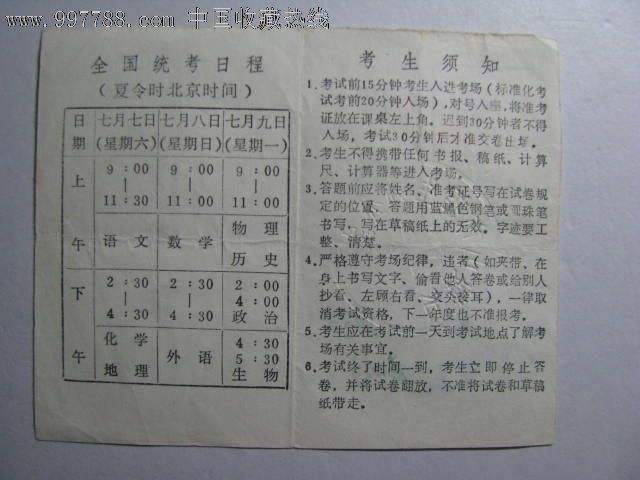 www.997788.com 中国收藏热线
全国统考日程
（夏令时北京时间）
日期 七月七日（星期六） 七月八日（星期日） 七月九日（星期一）
上午 9：00｜11：30 9：00｜11：00 9：00｜11：00
语文 数学 物理 历史
下午 2：30｜4：30 2：30｜4：30 2：00｜4：00 政治
化学 地理 外语 4：30｜5：30 生物
考生须知
1．考试前15分钟考生人进考场（标准化考
试考前20分钟人场），对号人座，将准考
证放在课桌左上角。迟到30分钟者不得
人场，考试30分钟后才准交卷出场。
2．考生不得携带任何书报、稿纸、计算
尺、计算器等进人考场。
3．答题前应将姓名、准考证号写在试卷规
定的位置、答题用蓝黑色钢笔或圆珠笔
书写，写在草稿纸上的无效。字迹要工
整、清楚。
4．严格遵守考场纪律，违者（如夹带、在
身上书写文字、偷看他人答卷或给别人
抄看、左顾右看、交头接耳），一律取
消考试资格，下一年度也不准报考。
5．考生应在考试前一天到考试地点了解考
场有关事宜。
6．考试终了时间一到，考生立即停止答
卷，并将试卷翻放，不准将试卷和草稿
纸带走。